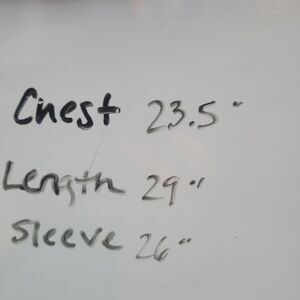 Chest 23.5"
Length 29"
Sleeve 26"